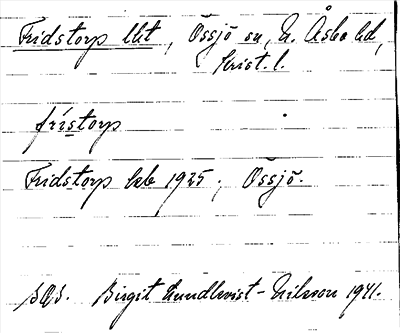 Fridstorp lht, Össjö sn, N. Åsbo hd,
Krist. l.
fristorp
Fridstorp lht 1925, Össjö.
Birgit Lundkvist-Nilsson 1941.